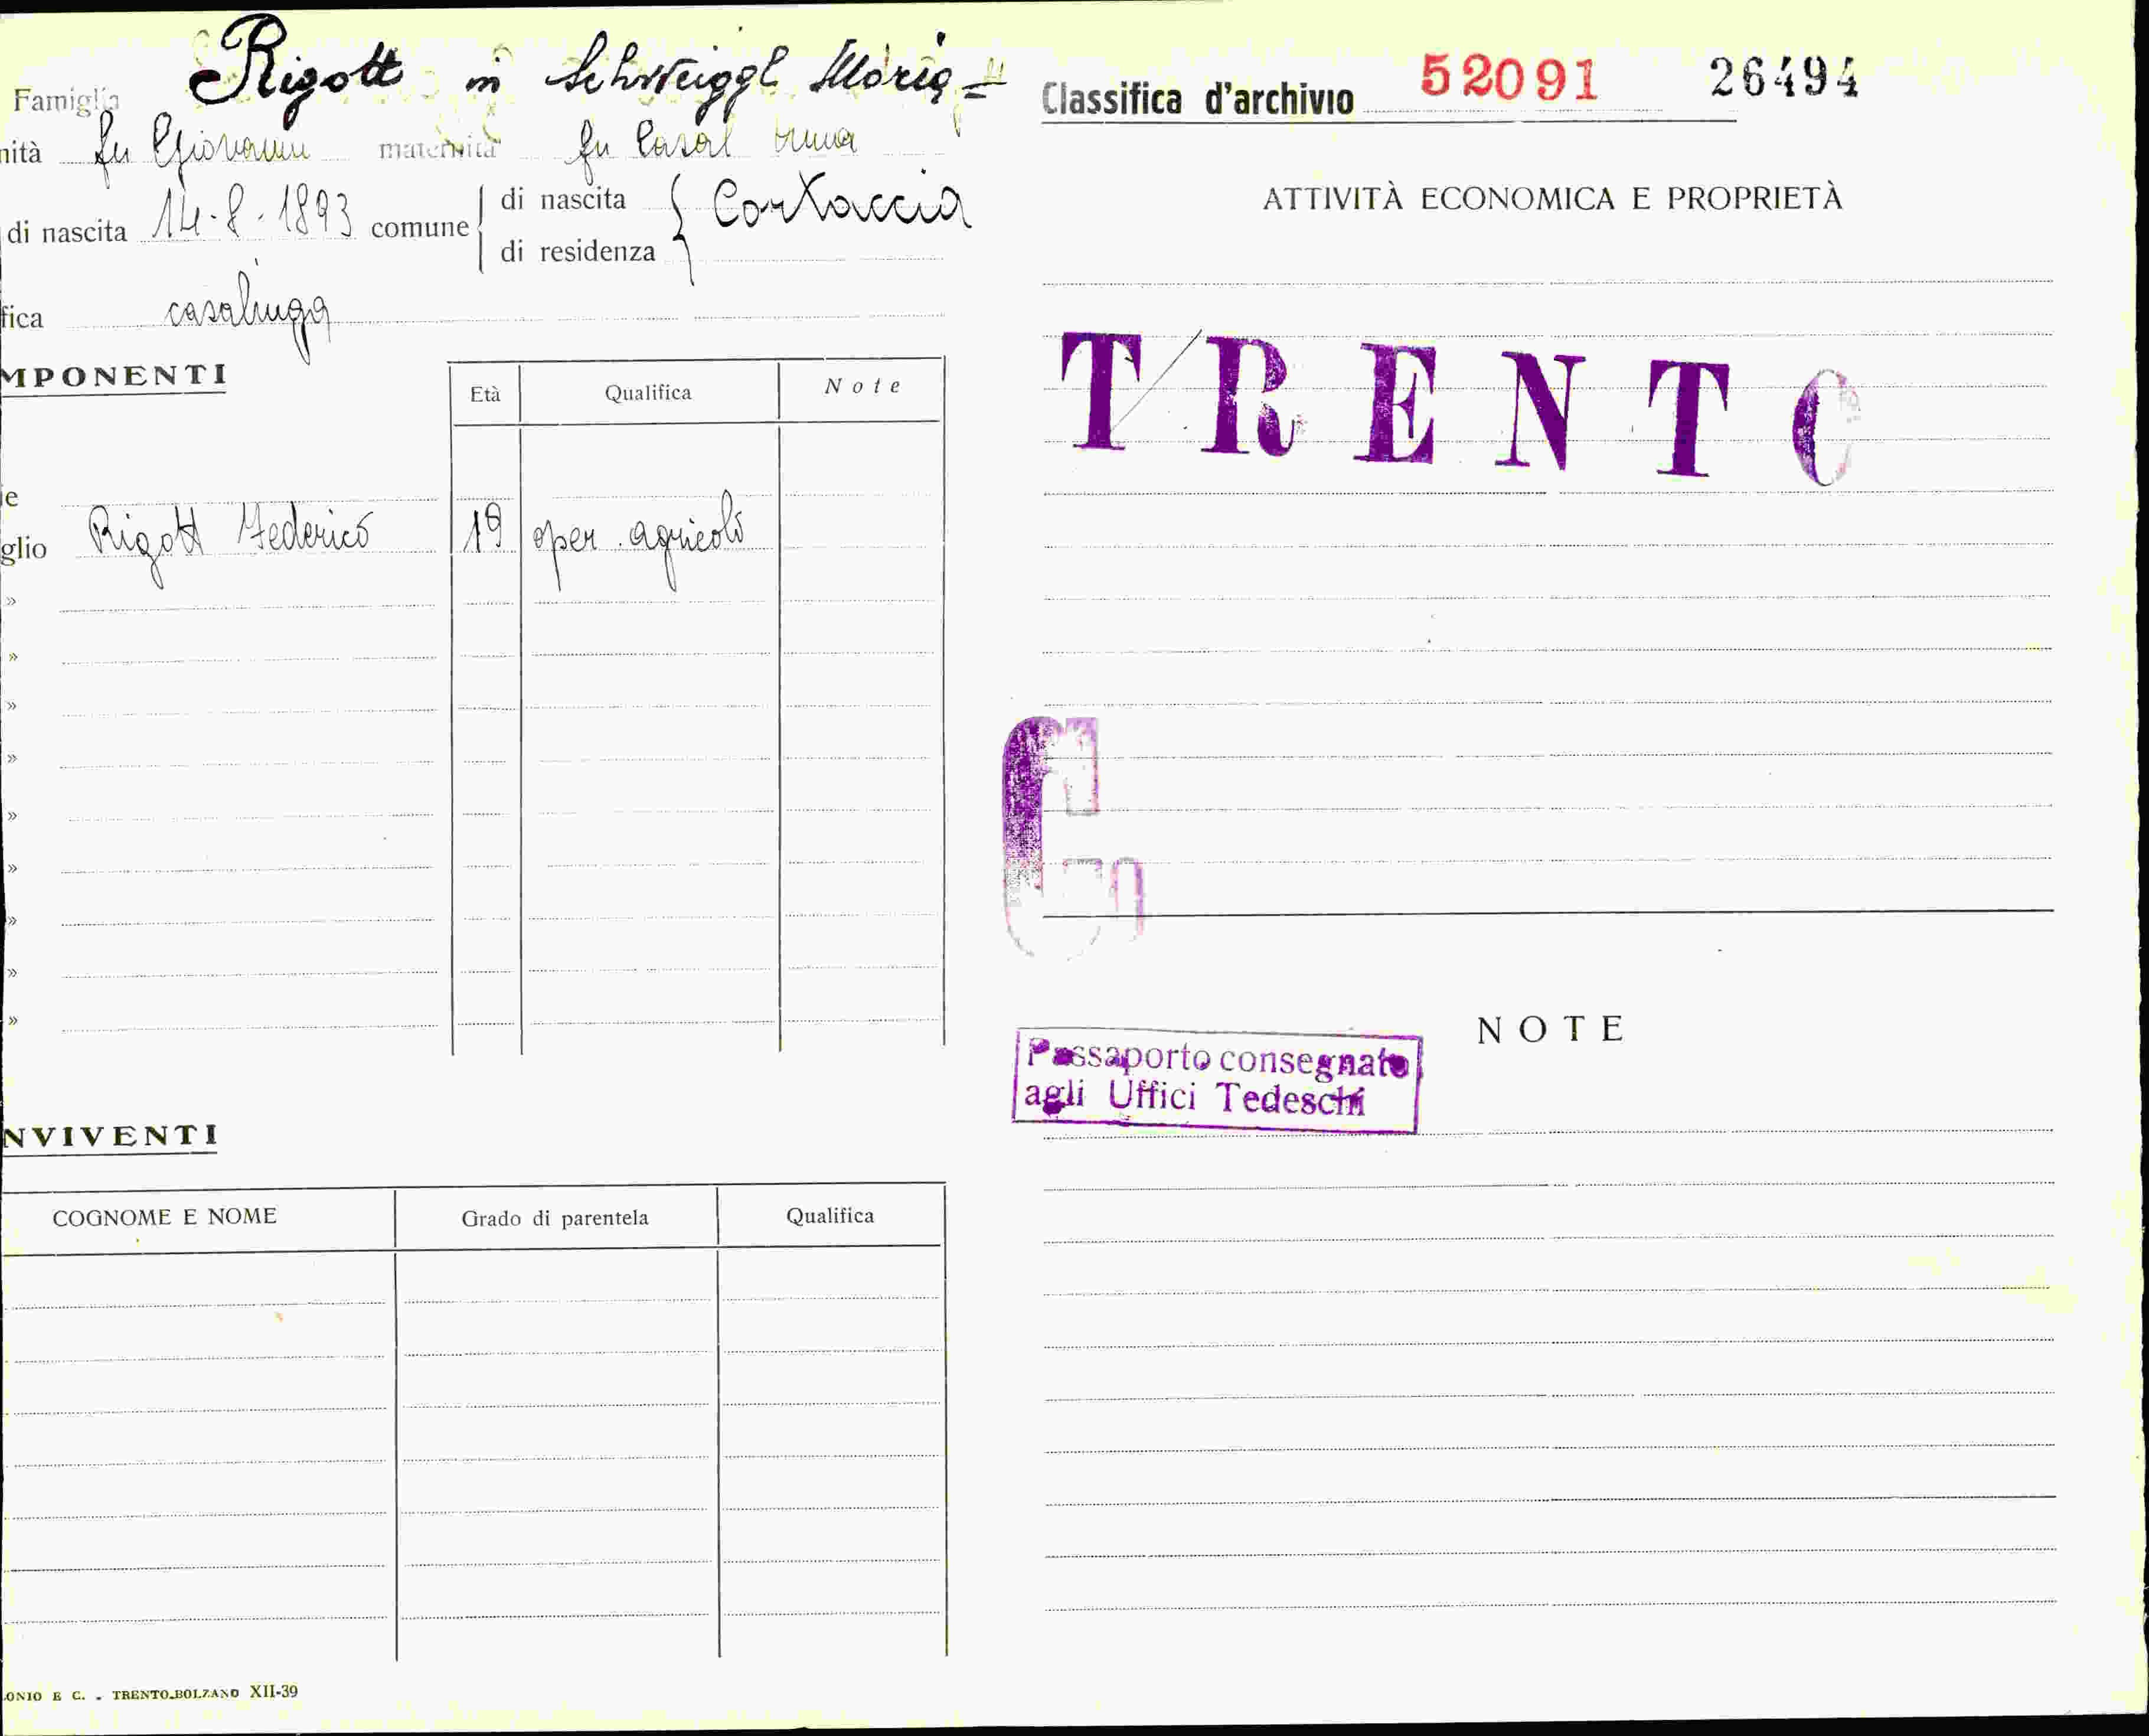 Famiglia Rigott in Schweiggl Maria =
nità fu Giovanni maternità fu Casal Anna
di nascita 14-8-1893 comune di nascita Cortaccia
di residenza
fica casalinga
MPONENTI
Età Qualifica Note
e
glio Rigott Federico 19 oper. agricolo
»
»
»
»
»
»
»
»
»
NVIVENTI
COGNOME E NOME Grado di parentela Qualifica
ONIO E C. - TRENTO-BOLZANO XII-39
Classifica d'archivio 52091 26494
ATTIVITÀ ECONOMICA E PROPRIETÀ
TRENTO
NOTE
Passaporto consegnato
agli Uffici Tedeschi